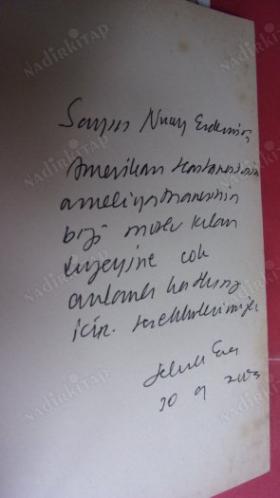 Sayın Nuray Erdemir,
Amerikan Hastanesinin
ameliyathanesinin
bizi mutlu kılan
düzeyine çok
anlamlı katkınız
için. teşekkürlerimizle
30 9 2003
NADİRKİTAP